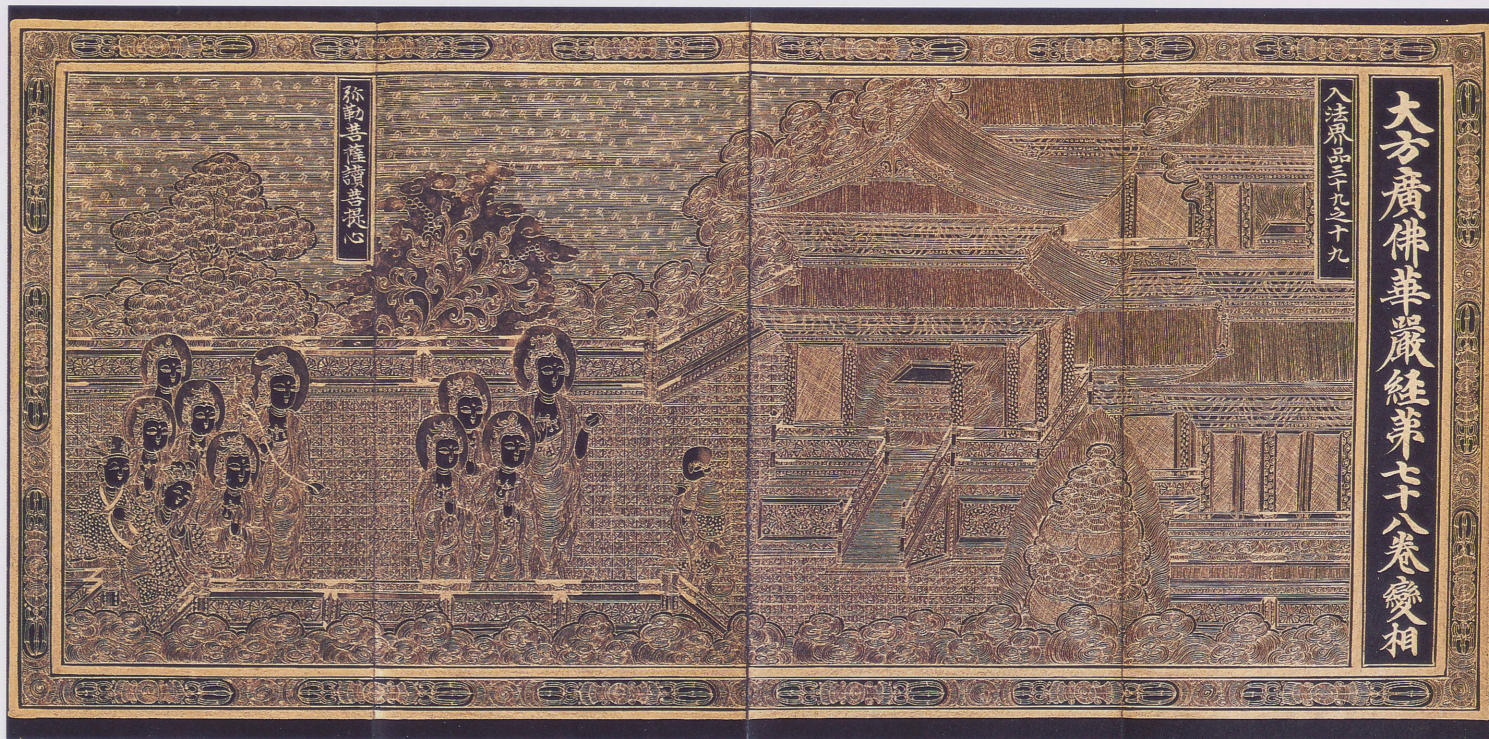 大方廣佛華嚴経苐七十八卷變相
入法界品三十九之十九
弥勒菩薩讃菩提心